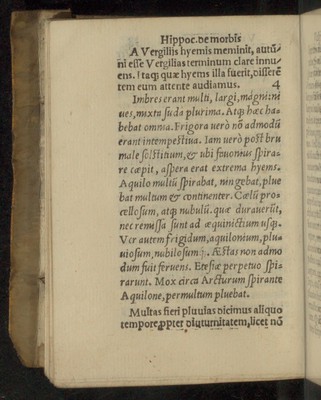 Hippoc. de morbis
A Vergiliis hyemis meminit, autū⸗
ni esse Vergilias terminum clare innu⸗
ens. Itaqꝫ quæ hyems illa fuerit, disserē
tem eum attente audiamus. 4
Imbres erant multi, largi, magni: ni
ues, mixta suda plurima. Atqꝫ hæc ha⸗
bebat omnia. Frigora uerò nō admodū
erant intempestiua. Iam uerò post bru
male solstitium, & ubi fauonius spira⸗
re cœpit, aspera erat extrema hyems.
Aquilo multū spirabat, ningebat, plue
bat multum & continenter. Cœlū pro⸗
cellosum, atqꝫ nubulū. quæ durauerūt,
nec remissa sunt ad æquinoctium usqꝫ.
Ver autem frigidum, aquilonium, plu⸗
uiosum, nubilosumqꝫ. Æstas non admo
dum fuit feruens. Etesiæ perpetuo spi⸗
rarunt. Mox circa Arcturum spirante
Aquilone, permultum pluebat.
Multas fieri pluuias dicimus aliquo
tempore, ꝓpter diuturnitatem, licet nō